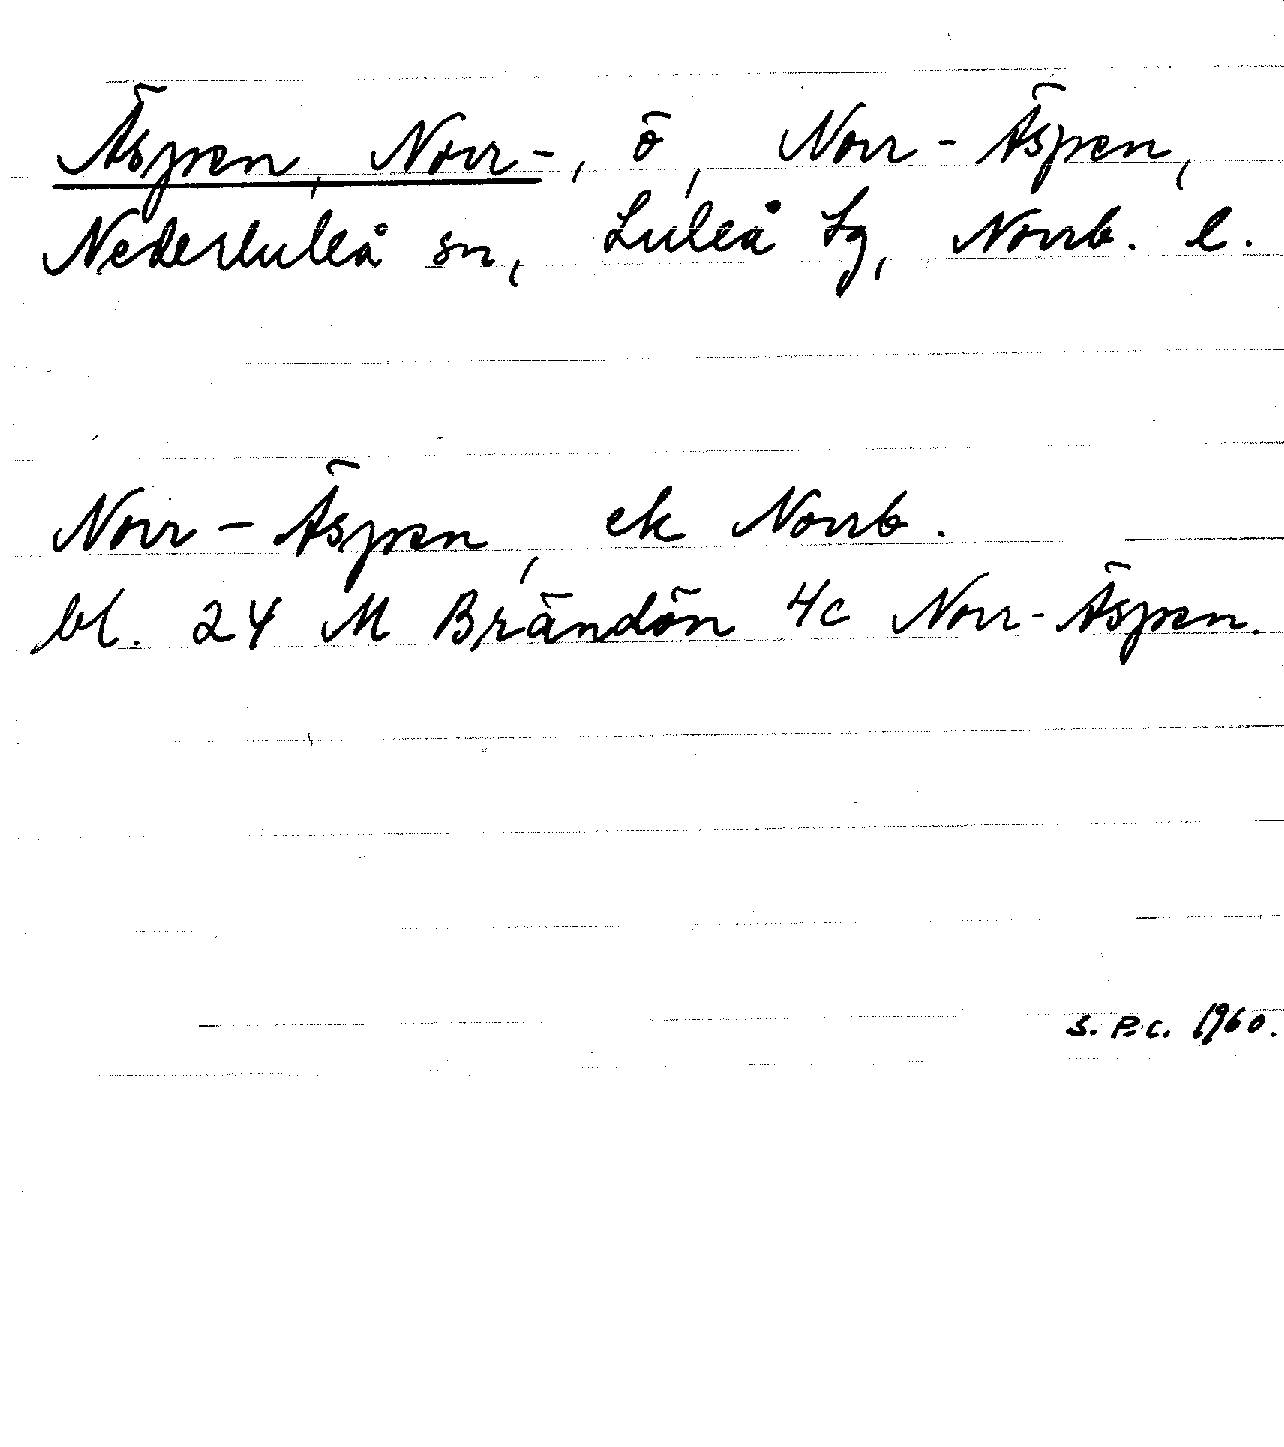 Äspen, Norr-, ö, Norr-Äspen,
Nederluleå sn, Luleå tg, Norrb. l.
Norr-Äspen, ek Norrb.
bl. 24 M Brändön 4c Norr-Äspen.
S. P.C. 1960.